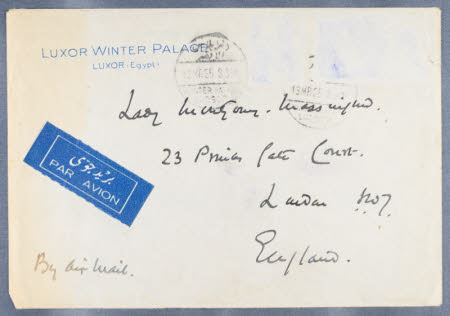 LUXOR WINTER PALACE
LUXOR (Egypt)
Lady
23 Princes Gate Court.
London SW7
England.
بريد جوي
PAR AVION
By Air Mail.